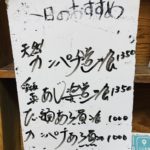 一日のおすすめ
天然
カンパチ造り 1350
あじ造り 1350
たい あら煮 1000
カンパチあら煮 1000